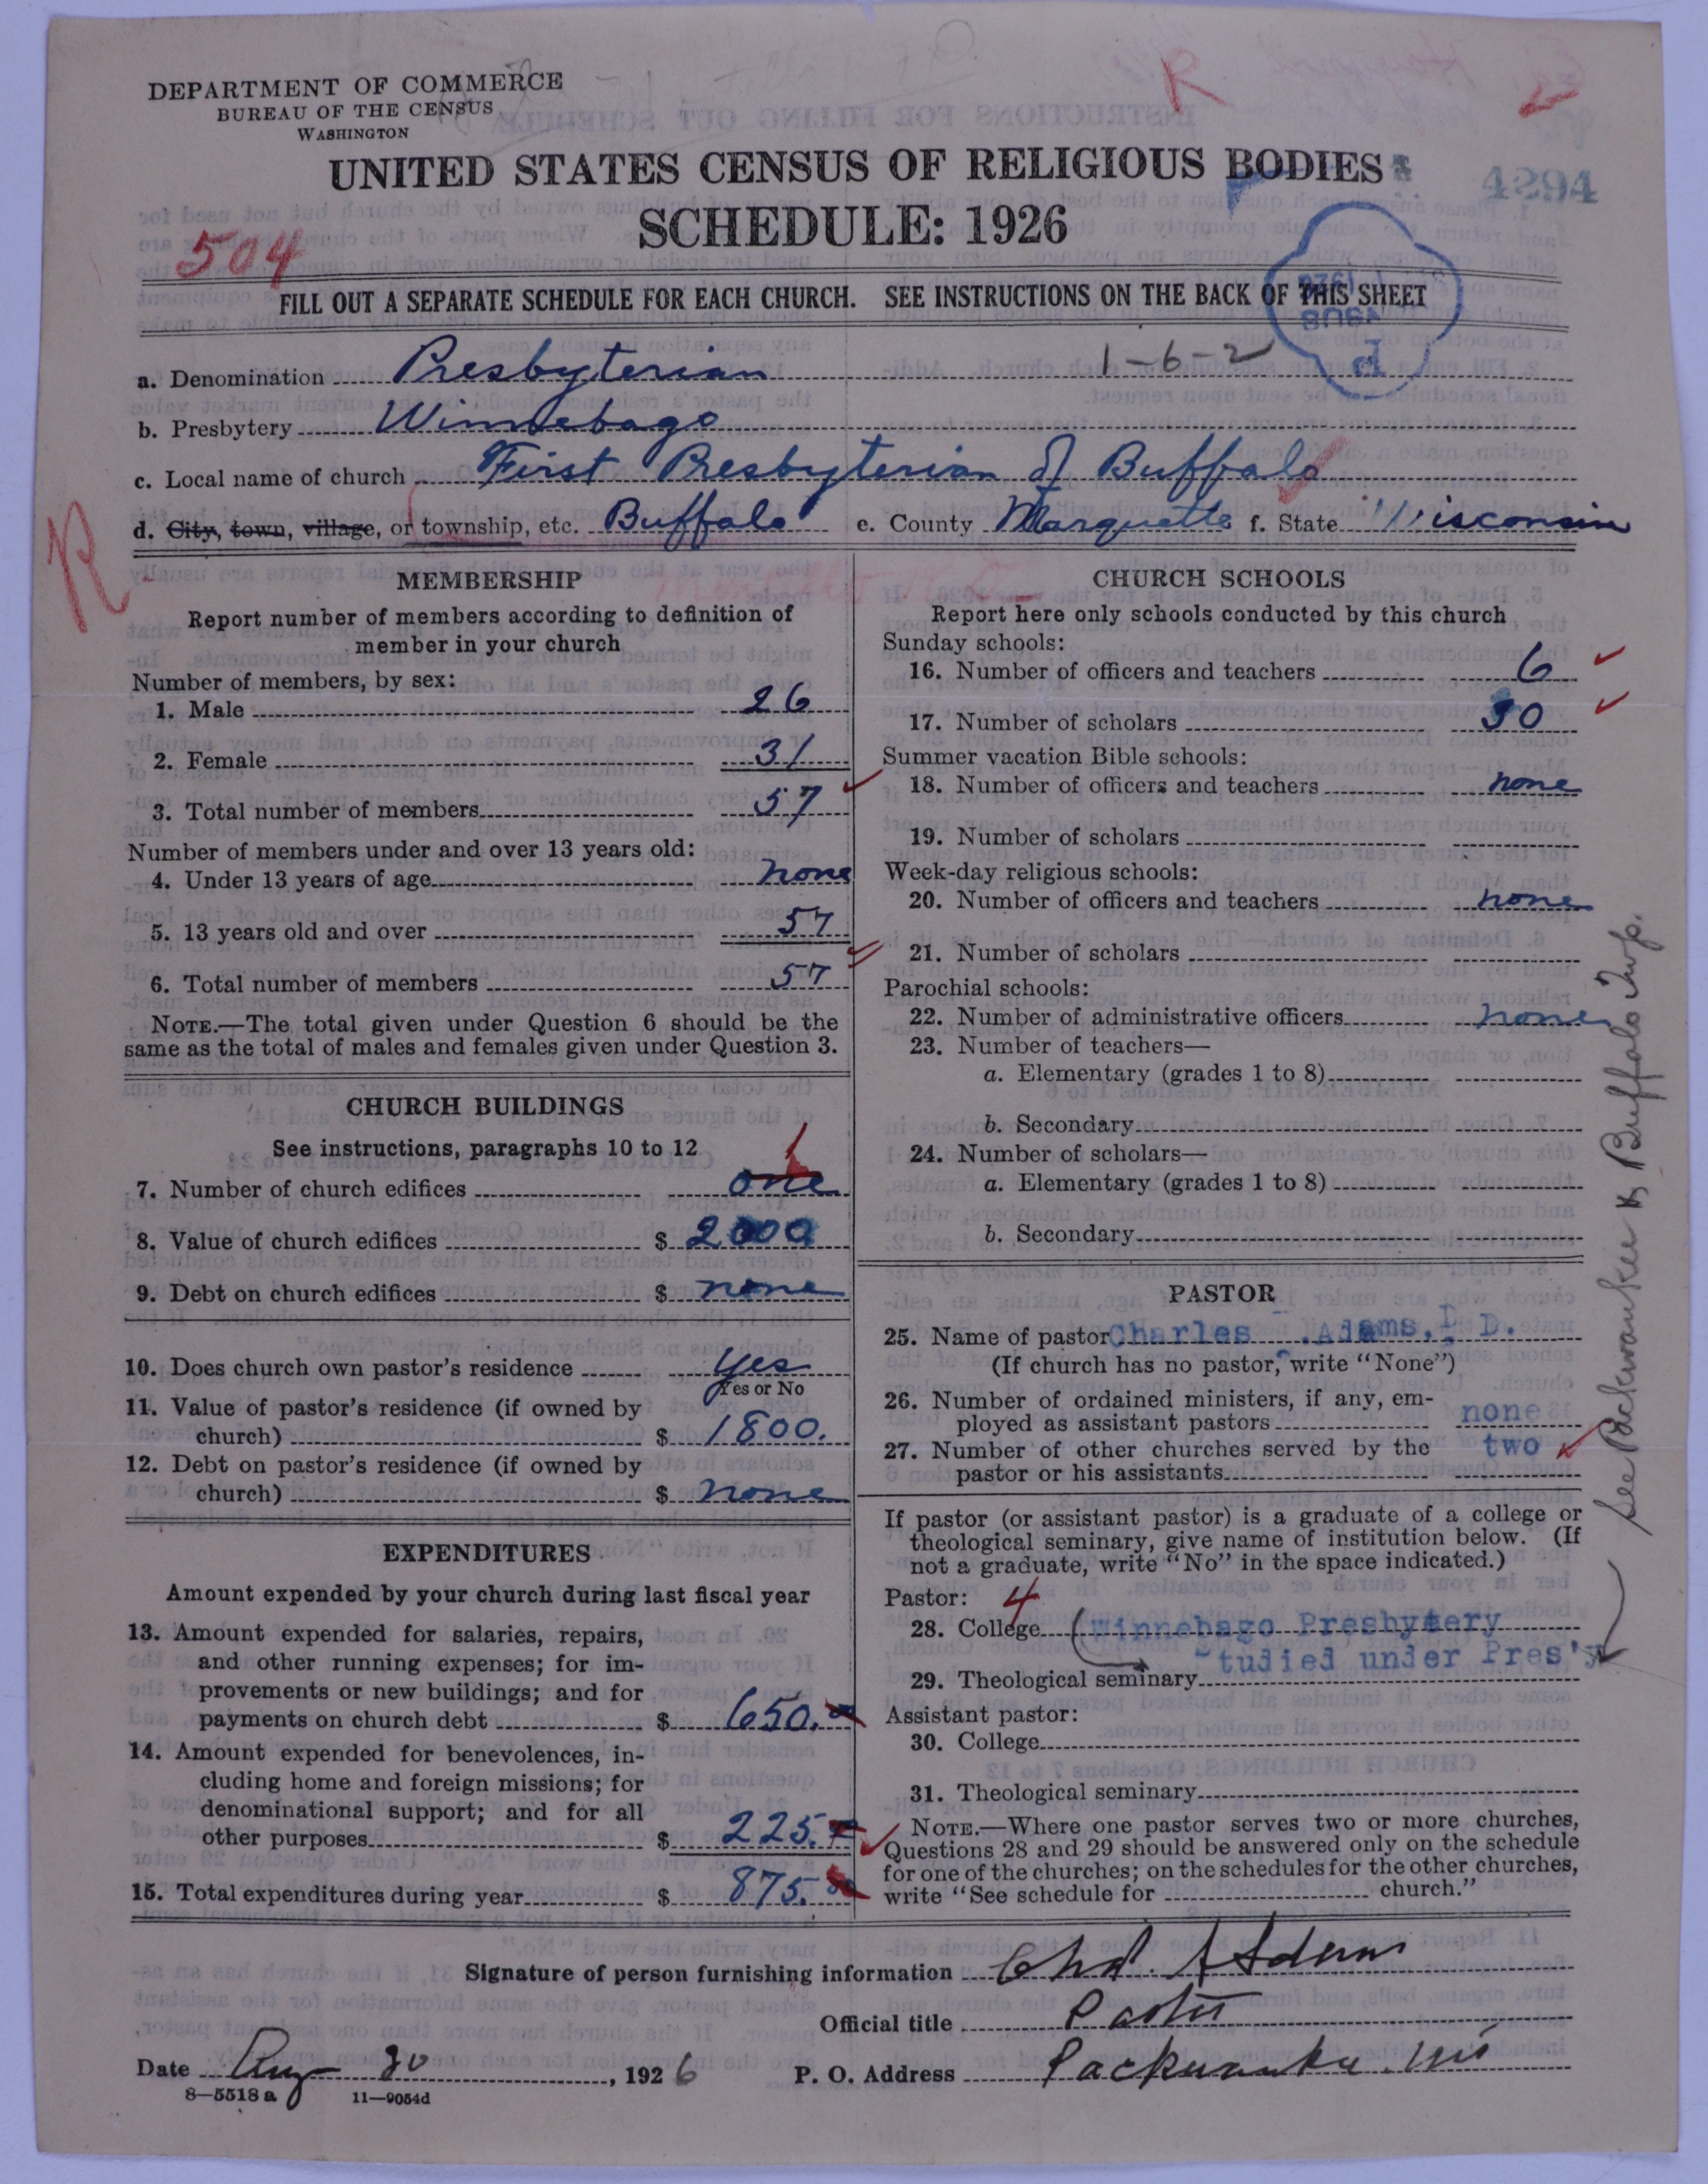 DEPARTMENT OF COMMERCE
BUREAU OF THE CENSUS
WASHINGTON
R
UNITED STATES CENSUS OF RELIGIOUS BODIES
4294
SCHEDULE: 1926
504
FILL OUT A SEPARATE SCHEDULE FOR EACH CHURCH. SEE INSTRUCTIONS ON THE BACK OF THIS SHEET
1-6-2
a. Denomination Presbyterian
b. Presbytery Winnebago
c. Local name of church First Presbyterian of Buffalo
d. City, town, village, or township, etc. Buffalo e. County Marquette f. State Wisconsin
R
MEMBERSHIP
Report number of members according to definition of
member in your church
Number of members, by sex:
1. Male 26
2. Female 31
3. Total number of members 57
Number of members under and over 13 years old:
4. Under 13 years of age none
5. 13 years old and over 57
6. Total number of members 57
NOTE.—The total given under Question 6 should be the
same as the total of males and females given under Question 3.
CHURCH BUILDINGS
See instructions, paragraphs 10 to 12
1
7. Number of church edifices one
8. Value of church edifices $ 2000
9. Debt on church edifices $ none
10. Does church own pastor's residence yes
Yes or No
11. Value of pastor's residence (if owned by
church) $ 1800.
12. Debt on pastor's residence (if owned by
church) $ none
EXPENDITURES
Amount expended by your church during last fiscal year
13. Amount expended for salaries, repairs,
and other running expenses; for im-
provements or new buildings; and for
payments on church debt $ 650.
14. Amount expended for benevolences, in-
cluding home and foreign missions; for
denominational support; and for all
other purposes $ 225.
15. Total expenditures during year $ 875.
CHURCH SCHOOLS
Report here only schools conducted by this church
Sunday schools:
16. Number of officers and teachers 6
17. Number of scholars 30
Summer vacation Bible schools:
18. Number of officers and teachers none
19. Number of scholars
Week-day religious schools:
20. Number of officers and teachers none
21. Number of scholars
Parochial schools:
22. Number of administrative officers none
23. Number of teachers—
a. Elementary (grades 1 to 8)
b. Secondary
24. Number of scholars—
a. Elementary (grades 1 to 8)
b. Secondary
PASTOR
25. Name of pastor Charles Adams, D.
(If church has no pastor, write "None")
26. Number of ordained ministers, if any, em-
ployed as assistant pastors none
27. Number of other churches served by the two
pastor or his assistants
If pastor (or assistant pastor) is a graduate of a college or
theological seminary, give name of institution below. (If
not a graduate, write "No" in the space indicated.)
Pastor: 4
28. College Winnebago Presbytery
tudied under Pres'y
29. Theological seminary
Assistant pastor:
30. College
31. Theological seminary
NOTE.—Where one pastor serves two or more churches,
Questions 28 and 29 should be answered only on the schedule
for one of the churches; on the schedules for the other churches,
write "See schedule for church."
See Packwaukee & Buffalo Twp.
Signature of person furnishing information Chas. A Adams
Official title Pastor
Date Aug 30, 1926 P. O. Address Packwaukee. Wis
8—5518 a 11—9054d